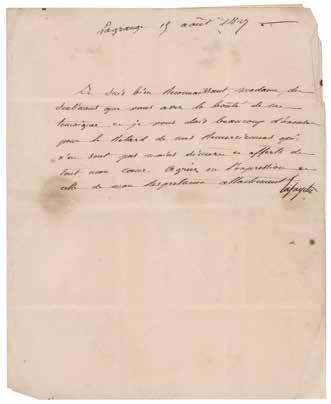 Lagrange 15 août 18
Je suis bien reconnaissant, madame, de
que vous avez la bonté de me
témoigner et je vous dois beaucoup d'excuses
pour le retard de mes remerciements qui
n'en sont pas moins sincères et offerts de
tout mon coeur. Agréez en l'expression et
celle de mon respectueux attachement
Lafayette